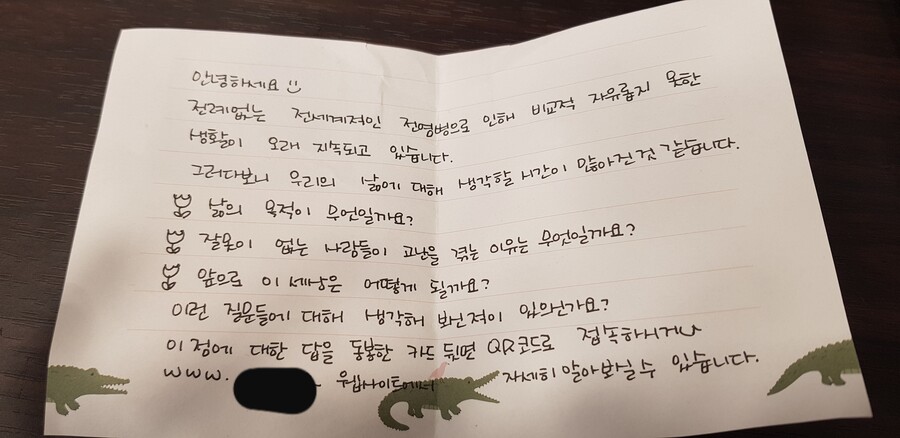 안녕하세요
전례없는 전세계적인 전염병으로 인해 비교적 자유롭지 못한
생활이 오래 지속되고 있습니다.
그러다보니 우리의 삶에 대해 생각할 시간이 많아진 것 같습니다.
삶의 목적이 무엇일까요?
잘못이 없는 사람들이 고난을 겪는 이유는 무엇일까요?
앞으로 이 세상은 어떻게 될까요?
이런 질문들에 대해 생각해 보신적이 있으신가요?
이 점에 대한 답을 동봉한 카드 뒷면 QR코드로 접속하시거나
www. 웹사이트에서 자세히 알아보실 수 있습니다.